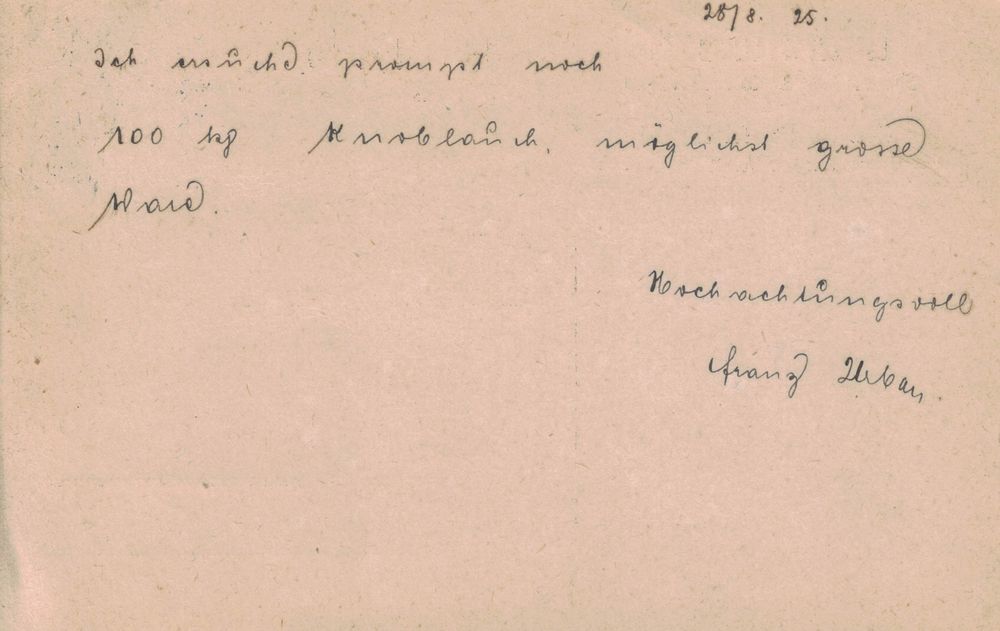 28/8. 25.
Ich ersuche prompt noch
100 kg Knoblauch, möglichst grosse
Ware.
Hochachtungsvoll
Franz Urban.